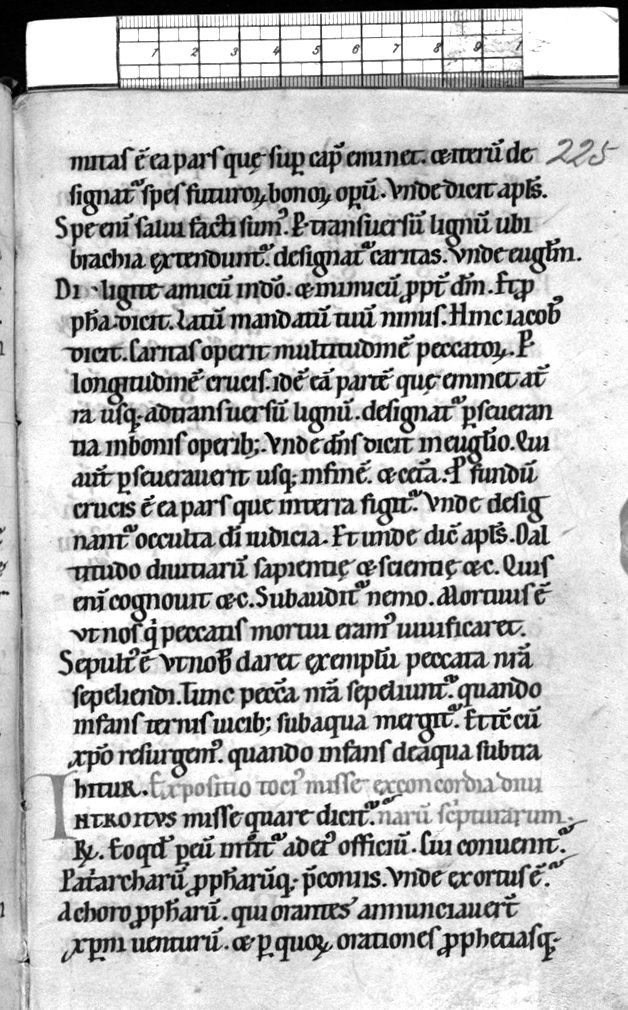 1 2 3 4 5 6 7 8 9 1
225
nitas ē ea pars quę sup̱ cap̄ eminet. & iterū de
signatʳ spes futuroꝝ bonoꝝ op̱ū. Vnde dicit apl̄s.
Spe eni̅ salui facti sumꝰ. P̱ transuersū lignū ubi
brachia extenduntʳ. designatʳ caritas. vnde eugl̄m.
Diligite amicū in dō. & inimicū ꝓpt̄ dm̄. Et ꝓ
ph̄a dicit. Latū mandatū tuū nimis. Hinc iacob
dicit. Caritas operit multitudinē peccatoꝝ. P̱
longitudinē crucis. idē eā partē quę eminet at̄
ra usq; ad transuersū lignū. designatʳ p̱seueran
tia in bonis operib;. Vnde dn̄s dicit in eugl̄io. Qui
aut̄ p̱seuerauerit usq; in finē. & cet̄a. P̱ fundū
crucis ē ea pars que in terra figitʳ. Vnde desig
nantʳ occulta dī iudicia. Et unde dic̄ apl̄s. O al
titudo diuitiarū sapientię & scientię &c. Quis
eni̅ cognouit &c. Subauditʳ nemo. Mortuus ē
vt nos q̇ peccatis mortui eramꝰ uiuificaret.
Sepultꝰ ē vt nob̄ daret exemplū peccata nr̄a
sepeliendi. Tunc pecc̄a nr̄a sepeliuntʳ. quando
infans ternis uicib; sub aqua mergitʳ. Et tc̄ cū
xp̄o resurgemꝰ. quando infans de aqua subtra
hitur. Expositio tociꝰ misse ex concordia diui
INTROITVS misse quare diciturʳ. narū scripturarum.
R̸. Eo qd̄ p̱ eū int̄tʳ ad eiꝰ officiū. Cui conuenitʳ.
Patarcharū ꝓph̄arūq; p̄conus. Vnde exortus ēʳ.
A choro ꝓph̄arū. qui orantes annunciauert̄
xp̄m uenturū. & p̱ quoꝝ orationes ꝓphetiasq;